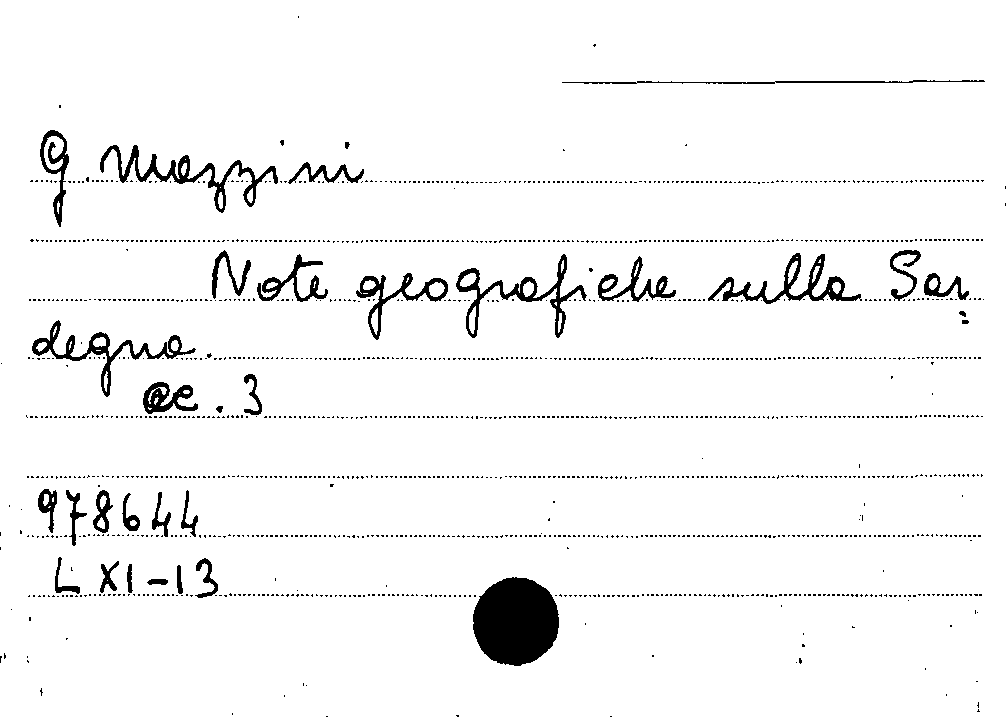 G. Mazzini
Note geografiche sulla Sar=
degna.
cc. 3
978644
L XI-13